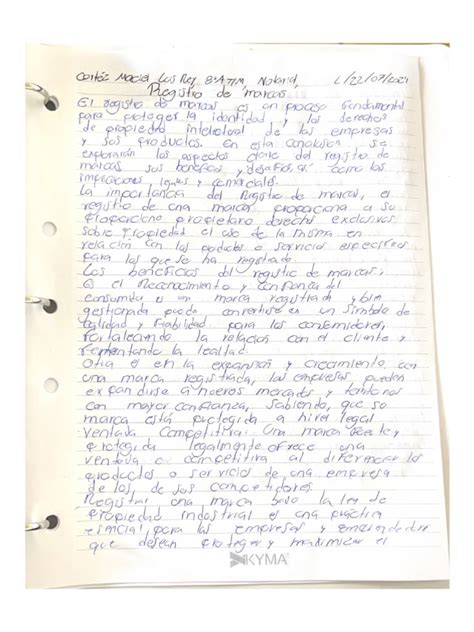 Cortés Macial Luis Rey 8°ATM, Notarial, L/22/07/2024
Registro de marcas
El registro de marcas es un proceso fundamental
para proteger la identidad y los derechos
de propiedad intelectual de las empresas
y sus productos. En esta conclusion se
explorarán los aspectos clave del registro de
marcas sus beneficios y desafíos, así como las
implicaciones legales y comerciales.
La importancia del Registro de marcas, el
registro de una marca proporciona a su
propietario derecho exclusivos
sobre propiedad el uso de la misma en
relación con los productos o servicios especificos
para los que se ha registrado.
Los beneficios del registro de marcas,
es el Reconocimiento y confianza del
Consumido es un marca registrada y bien
gestionada puede convertirse en un simbolo de
calidad y fiabilidad para los consumidores,
fortaleciendo la relacion con el cliente y
fomentando la lealtad.
Otra es en la expansión y crecimiento con
una marca registrada, las empresas pueden
expandirse a nuevos mercados y territorios
con mayor confianza, sabiendo, que su
marca está protegida a nivel legal
Ventaja Competitiva: Una marca fuerte y
protegida legalmente ofrece una
ventaja competitiva al diferenciar los
productos o servicio de una empresa
de los de sus competidores
Registrar una marca bajo la ley de
propiedad industrial es una práctica
esencial para las empresas y emprendedore
que desean proteger y maximizar el
KYMA